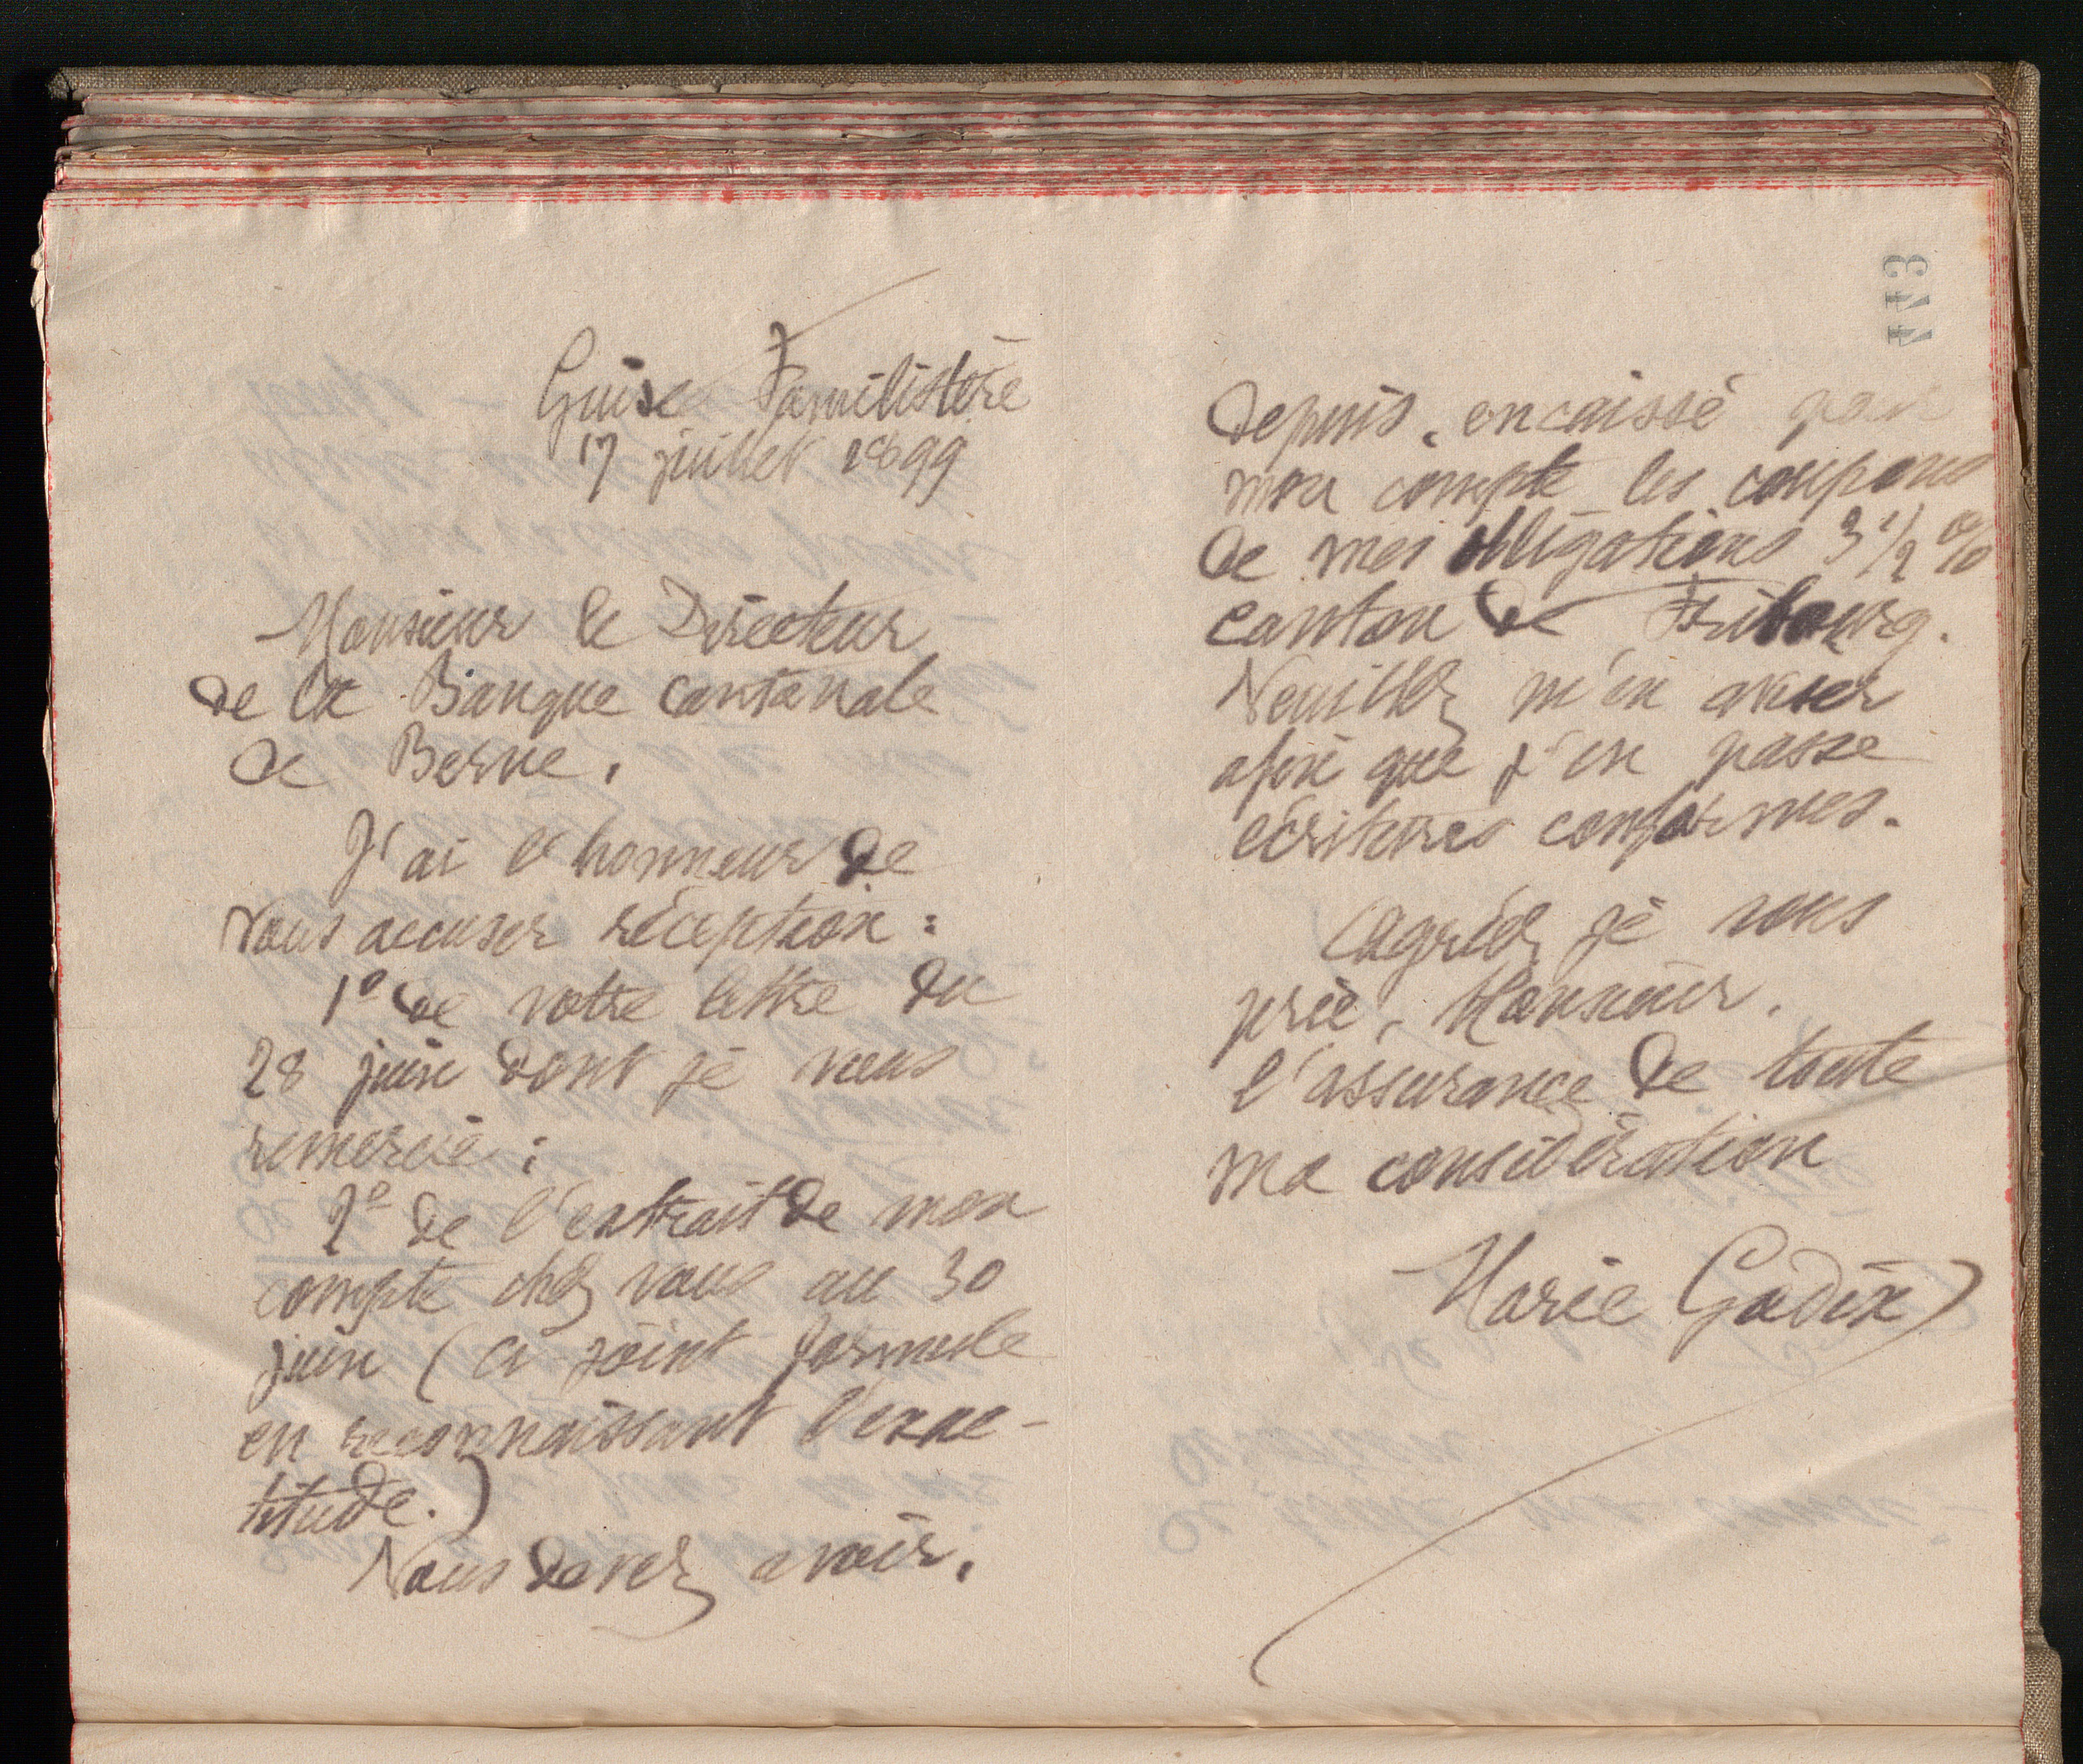 Guise Familistère
17 juillet 1899
Monsieur le Directeur
de la Banque cantonale
de Berne,
J'ai l'honneur de
vous accuser réception :
1º de votre lettre du
28 juin dont je vous
remercie ;
2º de l'extrait de mon
compte chez vous au 30
juin (ci-joint formule
en reconnaissant l'exac-
titude.)
Vous devez avoir,
443
depuis, encaissé pour
mon compte les coupons
de mes obligations 3 1/2 %
canton de Fribourg.
Veuillez m'en aviser
afin que j'en passe
écritures conformes.
Agréez je vous
prie, Monsieur,
l'assurance de toute
ma considération
Marie Godin